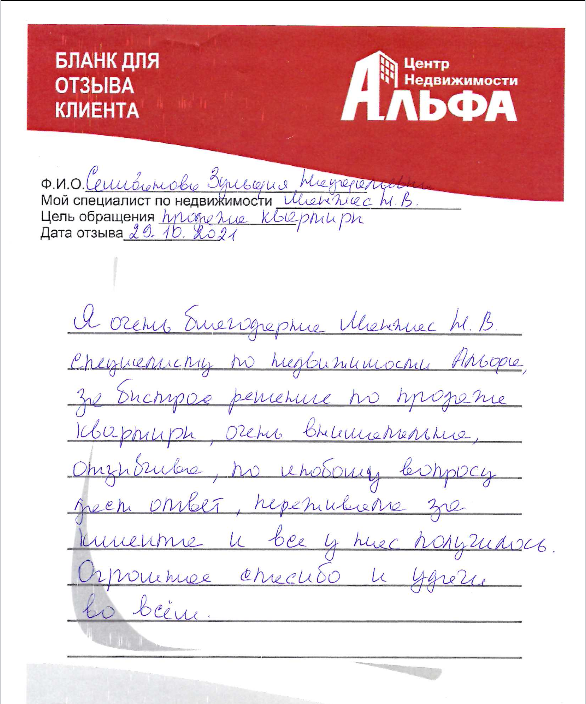 БЛАНК ДЛЯ
ОТЗЫВА
КЛИЕНТА
Центр
Недвижимости
АЛЬФА
Ф.И.О. Зульфия
Мой специалист по недвижимости М.В.
Цель обращения продажа квартиры
Дата отзыва 29.10.2021
Я очень благодарна М.В.
специалисту по недвижимости Альфа,
за быстрое решение по продаже
квартиры, очень внимательна,
отзывчива, по любому вопросу
даст ответ, переживала за
клиента и все у нас получилось.
Огромное спасибо и удачи
во всём.